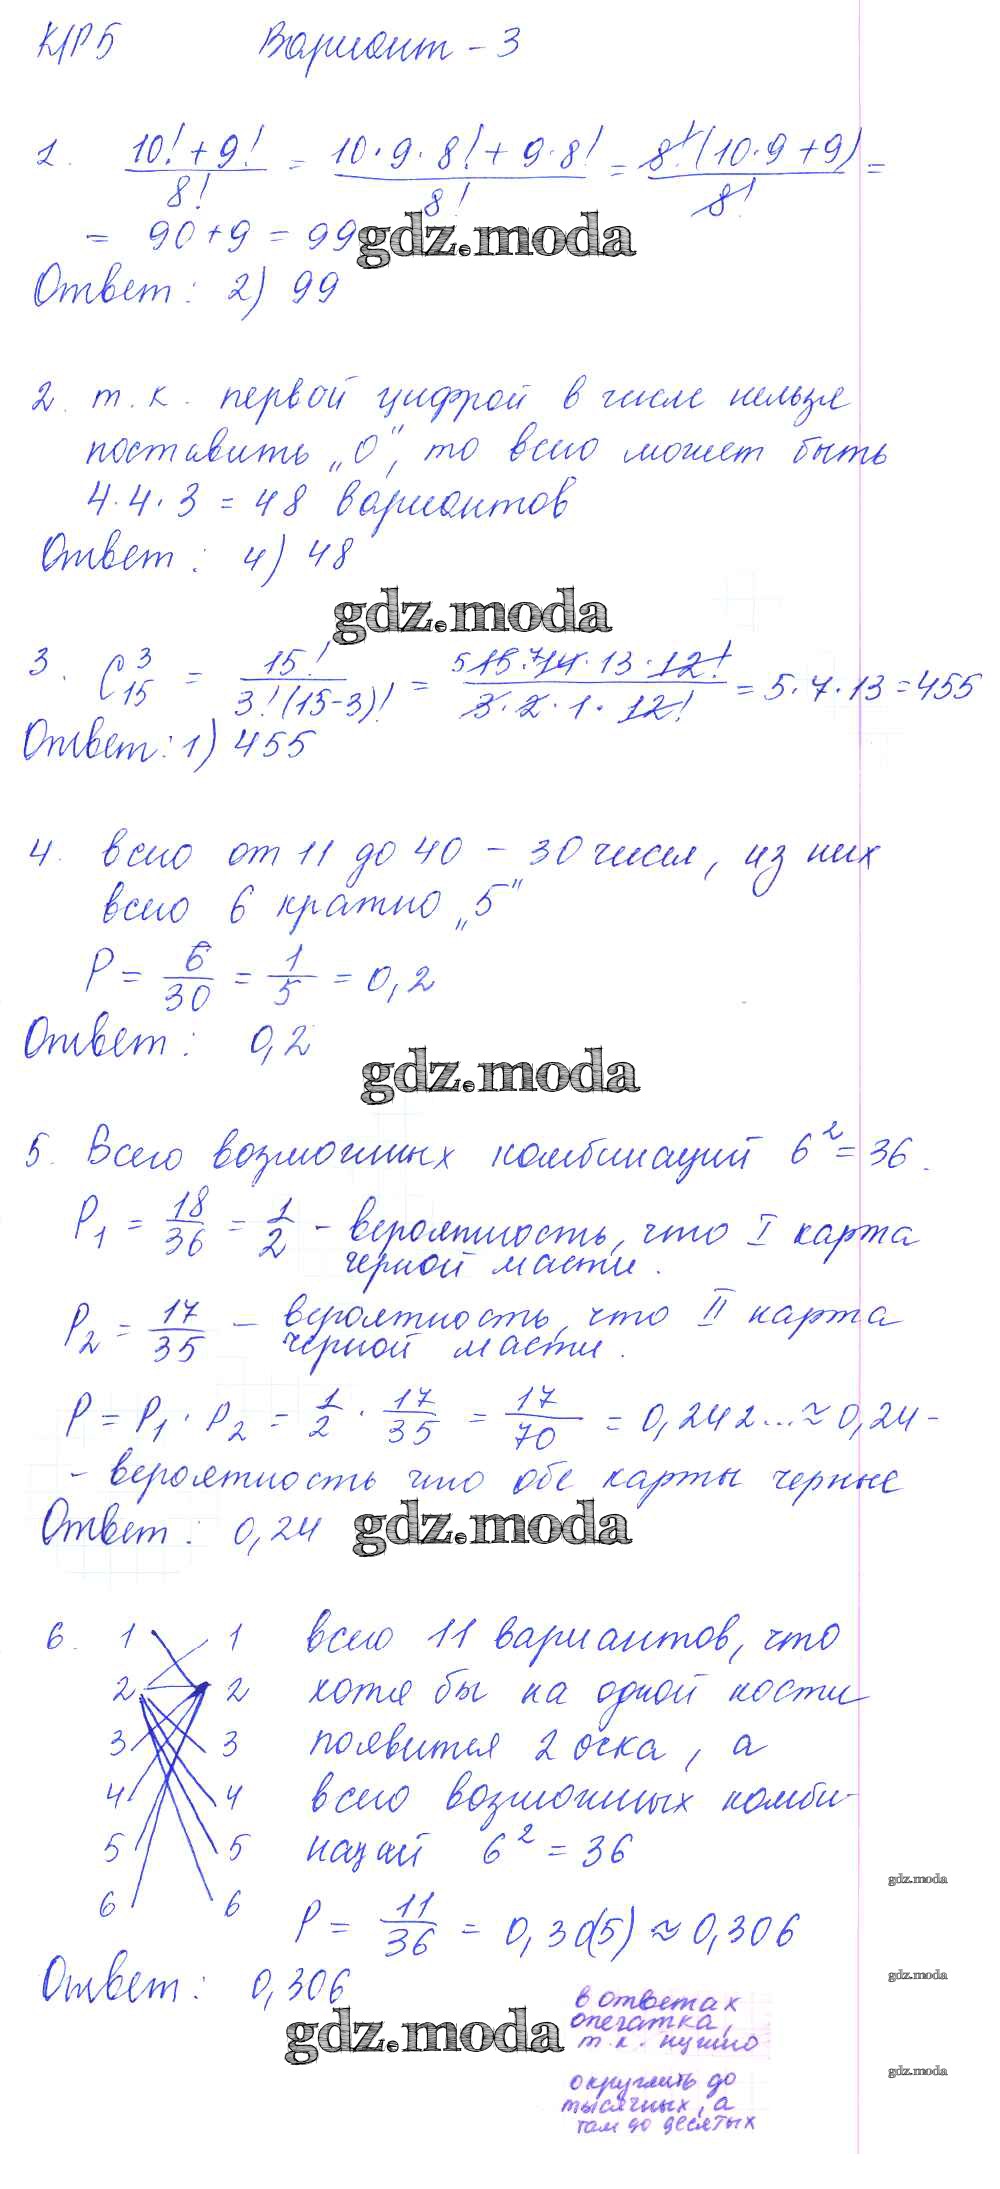 К/Р 5 Вариант - 3
1. (10! + 9!)/8! = (10·9·8! + 9·8!)/8! = 8!(10·9+9)/8! =
= 90+9 = 99
gdz.moda
Ответ: 2) 99
2. т.к. первой цифрой в числе нельзя
поставить „0", то всего может быть
4·4·3 = 48 вариантов
Ответ: 4) 48
gdz.moda
3. C₁₅³ = 15!/(3!(15-3)!) = (5 15·7 14·13·12!)/(3·2·1·12!) = 5·7·13 = 455
Ответ: 1) 455
4. всего от 11 до 40 - 30 чисел, из них
всего 6 кратно „5"
P = 6/30 = 1/5 = 0,2
Ответ: 0,2
gdz.moda
5. Всего возможных комбинаций 6² = 36.
P₁ = 18/36 = 1/2 - вероятность, что I карта
черной масти.
P₂ = 17/35 - вероятность, что II карта
черной масти.
P = P₁ · P₂ = 1/2 · 17/35 = 17/70 = 0,242... ≈ 0,24 -
- вероятность что обе карты черные
Ответ: 0,24
gdz.moda
6. 1 1 всего 11 вариантов, что
2 2 хотя бы на одной кости
3 3 появится 2 очка, а
4 4 всего возможных комби-
5 5 наций 6² = 36
6 6 P = 11/36 = 0,30(5) ≈ 0,306
Ответ: 0,306
gdz.moda
в ответах
опечатка,
т.к. нужно
округлить до
тысячных, а
там до десятых
gdz.moda
gdz.moda
gdz.moda